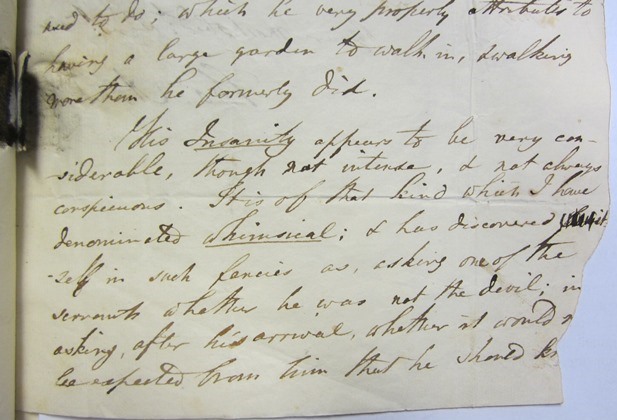 used to do; which he very properly attributes to
having a large garden to walk in, & walking
more than he formerly did.
His Insanity appears to be very con-
siderable, though not intense, & not always
conspicuous. It is of that kind which I have
denominated whimsical; & has discovered it-
self in such fancies as, asking one of the
servants whether he was not the devil; in
asking, after his arrival, whether it would
be expected from him that he should